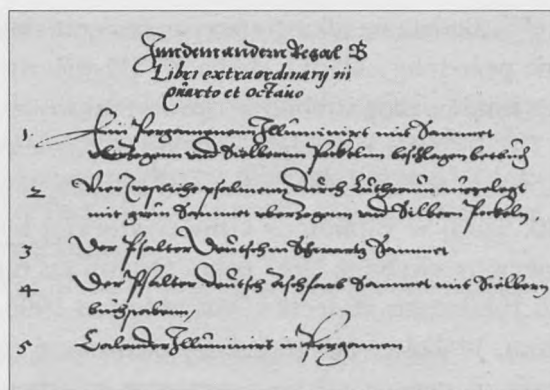 In dem andern Regal B
Libri extraordinarij in
quarto et octauo
1 Ein Pergamenen Illuminirt mit Sammet
vberzogen vnd Silbern Puckeln beschlagen betbuch
2 Vier trostliche psalmenn durch Lutherum ausgelegt
mit grün Sammet vberzogen vnd Silbern Puckeln
3 Der Psalter Deutsch in Schwartz Sammet
4 Der Psalter Deutsch Aschfarb Sammet mit Silbern
buchstaben,
5 Calender Illuminirt in Pergamen